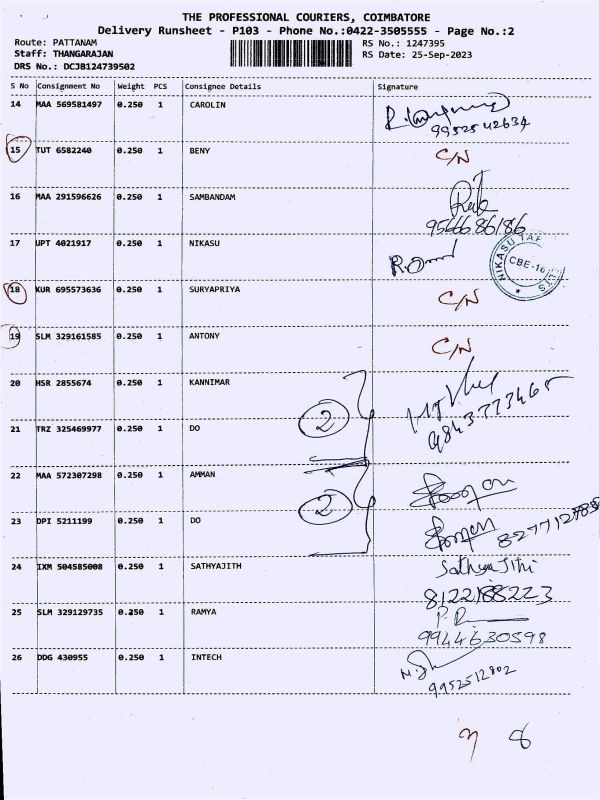 THE PROFESSIONAL COURIERS, COIMBATORE
Delivery Runsheet - P103 - Phone No.:0422-3505555 - Page No.:2
Route: PATTANAM RS No.: 1247395
Staff: THANGARAJAN RS Date: 25-Sep-2023
DRS No.: DCJB124739502
S No Consignment No Weight PCS Consignee Details Signature
14 MAA 569581497 0.250 1 CAROLIN
9952542634
15 TUT 6582240 0.250 1 BENY C/N
16 MAA 291596626 0.250 1 SAMBANDAM
9566686186
17 UPT 4021917 0.250 1 NIKASU
NIKASU
CBE-16
18 KUR 695573636 0.250 1 SURYAPRIYA C/N
19 SLM 329161585 0.250 1 ANTONY C/N
20 HSR 2855674 0.250 1 KANNIMAR
2 9843773465
21 TRZ 325469977 0.250 1 DO
22 MAA 572307298 0.250 1 AMMAN
2
23 DPI 5211199 0.250 1 DO
24 IXM 504585008 0.250 1 SATHYAJITH Sathya Jithi
8122188223
25 SLM 329129735 0.250 1 RAMYA
9944630598
26 DDG 430955 0.250 1 INTECH
9952512802
8